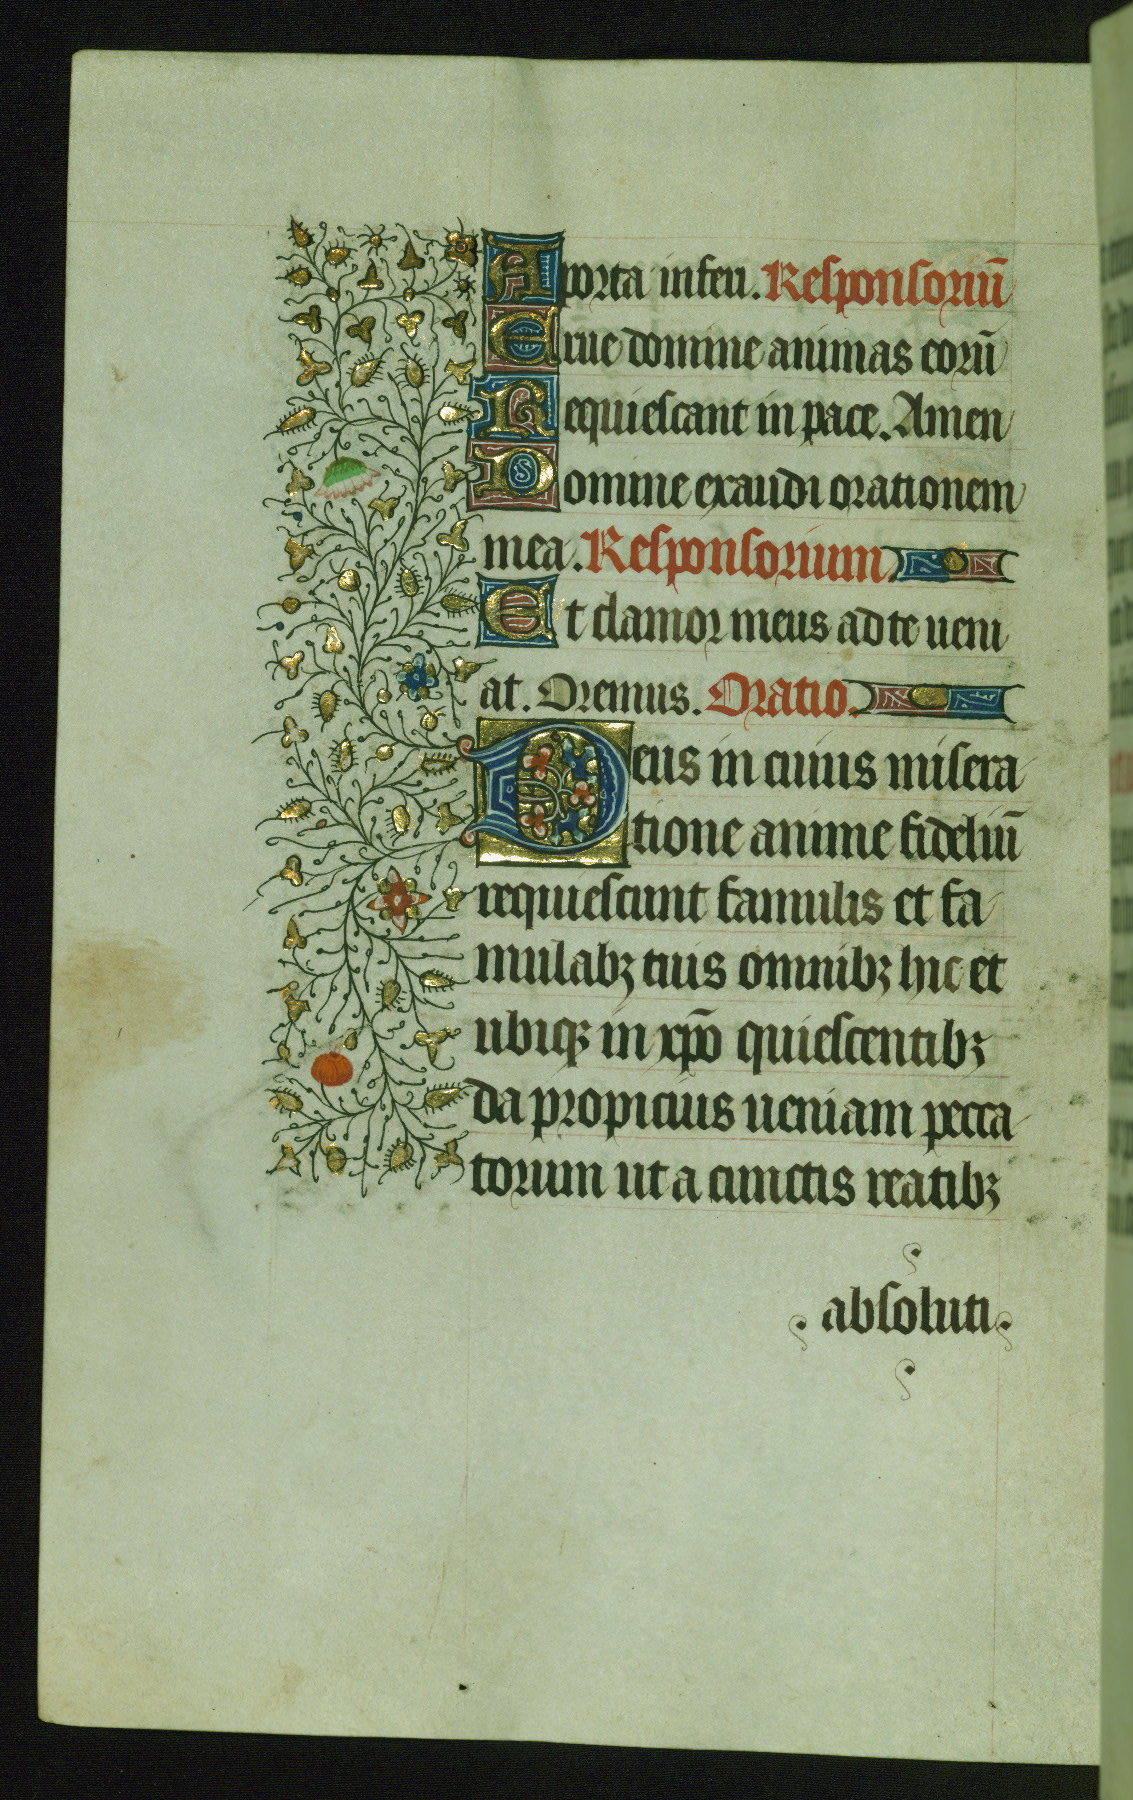 A porta inferi. Responsoriū
Erue domine animas eorū
Requiescant in pace. Amen
Domine exaudi orationem
mea. Responsorium
Et clamor meus ad te ueni
at. Oremus. Oratio.
Deus in cuius misera
tione anime fideliū
requiescunt famulis et fa
mulabꝫ tuis omnibꝫ hic et
ubiqꝫ in xp̄o quiescentibꝫ
da propicius ueniam pecca
torum ut a cunctis reatibꝫ
absoluti